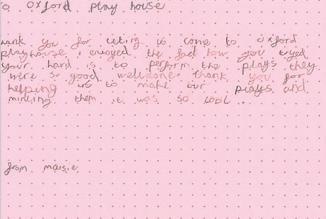 o Oxford play house
ank you for leting us come to oxford
playhouse i enjoyed the fact how you tryed
your hard is to perform the plays they
were so good welldone thank you for
helping us to make our plays and
miniing them it was so cool ..
from maisie